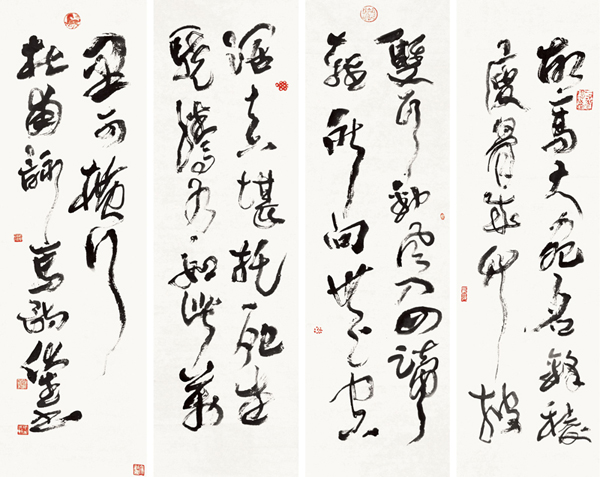 胡馬大宛名鋒稜
瘦骨成竹批
雙耳峻風入四蹄
輕所向無空
闊真堪托死生
驍騰有如此萬
里可橫行
杜甫詩